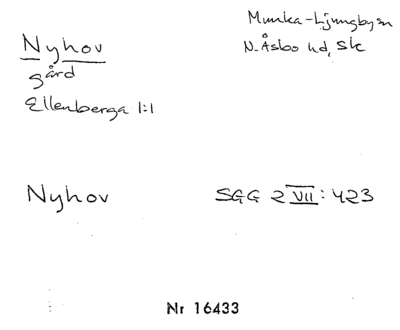 Nyhov
gård
Ellenberga 1:1
Munka-Ljungby sn
N. Åsbo hd, Sk
Nyhov
SGG 2 VII: 423
Nr 16433